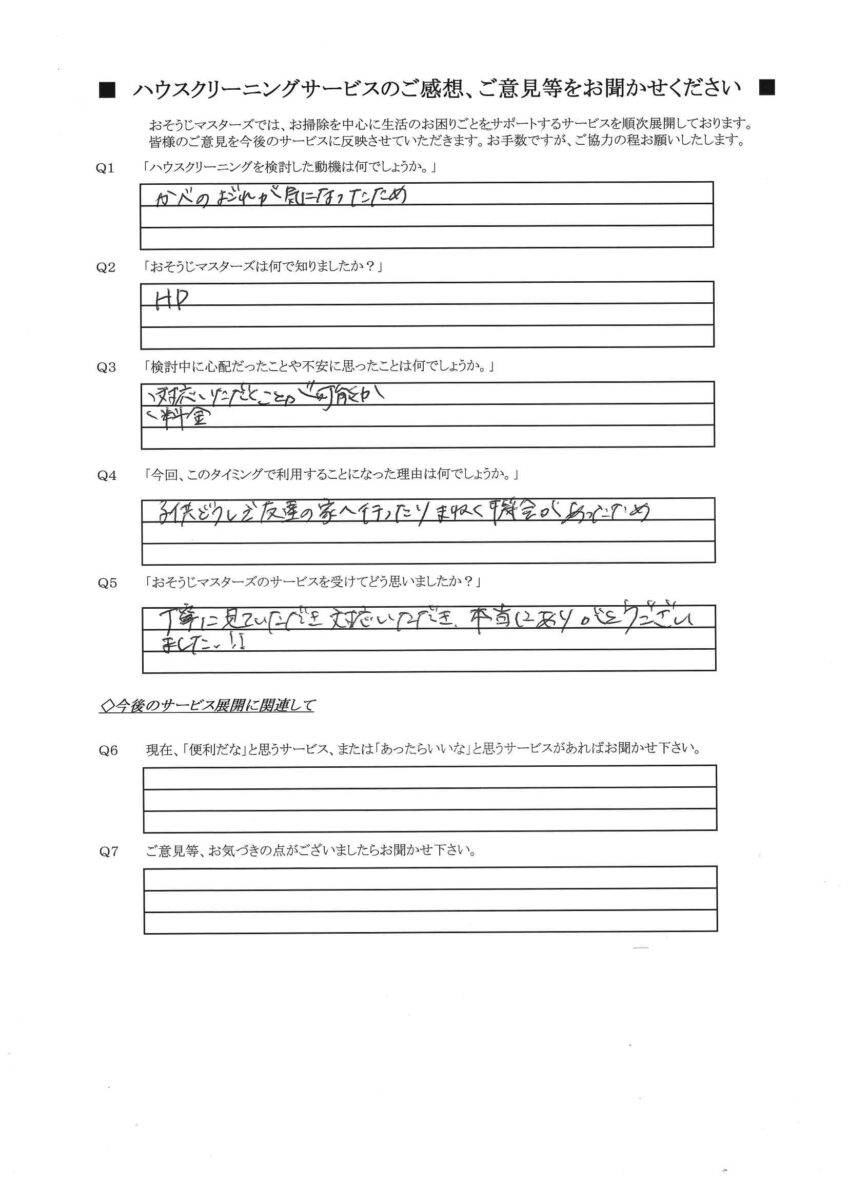 ■ ハウスクリーニングサービスのご感想、ご意見等をお聞かせください ■
おそうじマスターズでは、お掃除を中心に生活のお困りごとをサポートするサービスを順次展開しております。
皆様のご意見を今後のサービスに反映させていただきます。お手数ですが、ご協力の程お願いしたします。
Q1 「ハウスクリーニングを検討した動機は何でしょうか。」
かべのよごれが気になったため
Q2 「おそうじマスターズは何で知りましたか？」
HP
Q3 「検討中に心配だったことや不安に思ったことは何でしょうか。」
対応いただくことが可能か
料金
Q4 「今回、このタイミングで利用することになった理由は何でしょうか。」
子供どうしで友達の家へ行ったりまねく機会があったため
Q5 「おそうじマスターズのサービスを受けてどう思いましたか？」
丁寧に見ていただき対応いただき、本当にありがとうござい
ました!!
◇今後のサービス展開に関連して
Q6 現在、「便利だな」と思うサービス、または「あったらいいな」と思うサービスがあればお聞かせ下さい。
Q7 ご意見等、お気づきの点がございましたらお聞かせ下さい。